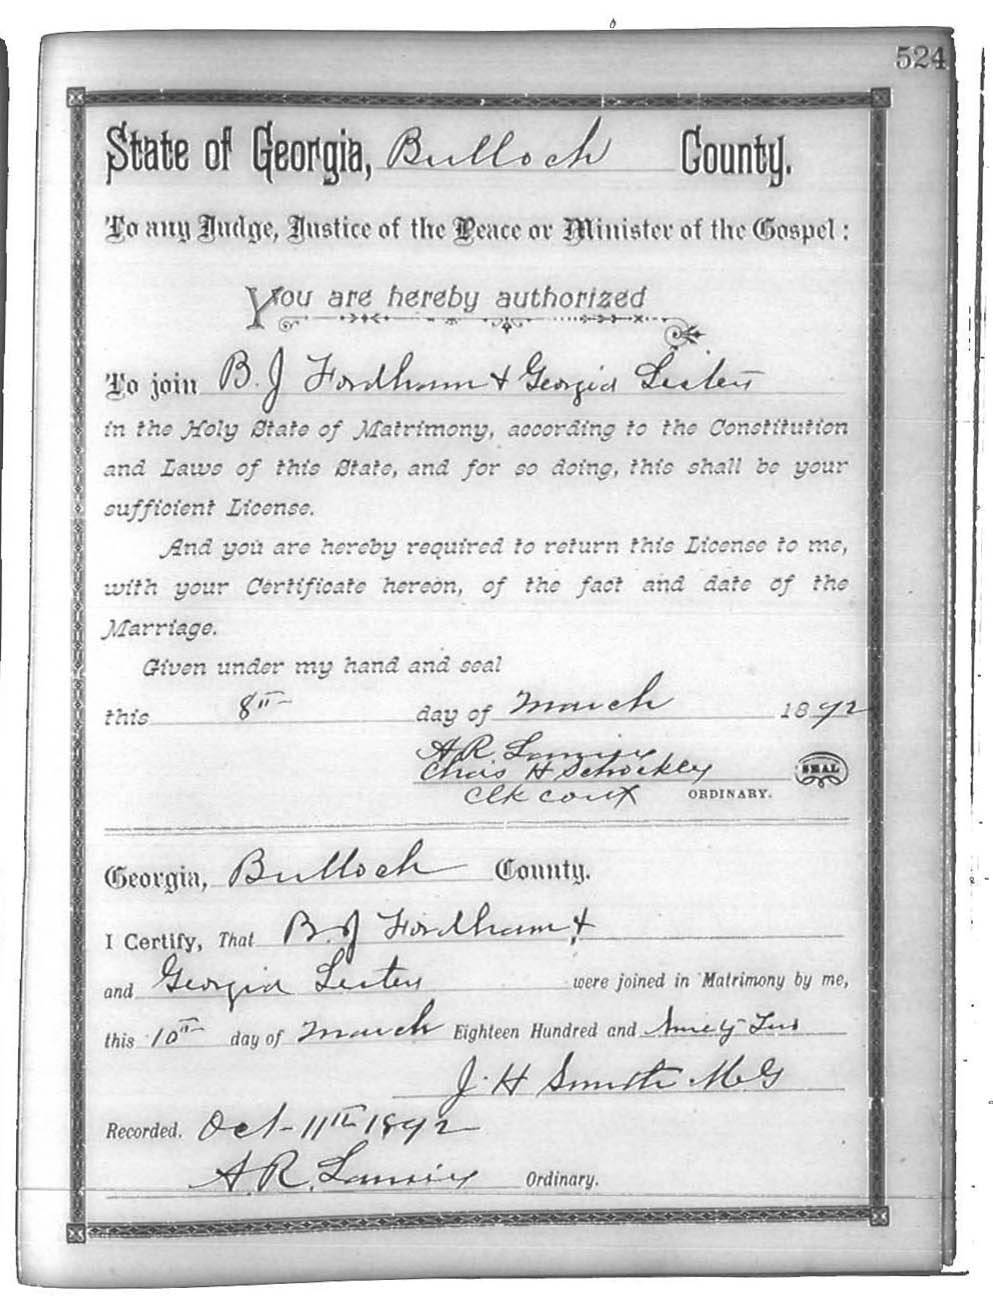 524
State of Georgia, Bulloch County.
To any Judge, Justice of the Peace or Minister of the Gospel:
You are hereby authorized
To join B. J Fordham & Georgia Lester
in the Holy State of Matrimony, according to the Constitution
and Laws of this State, and for so doing, this shall be your
sufficient License.
And you are hereby required to return this License to me,
with your Certificate hereon, of the fact and date of the
Marriage.
Given under my hand and seal
this 8th day of March 1892
A R
Chas H Schockley SEAL
Clk ORDINARY.
Georgia, Bulloch County.
I Certify, That B. J Fordham &
and Georgia Lester were joined in Matrimony by me,
this 10th day of March Eighteen Hundred and Ninety Two
J. H Smith M G
Recorded. Oct - 11th 1892
A. R. Ordinary.